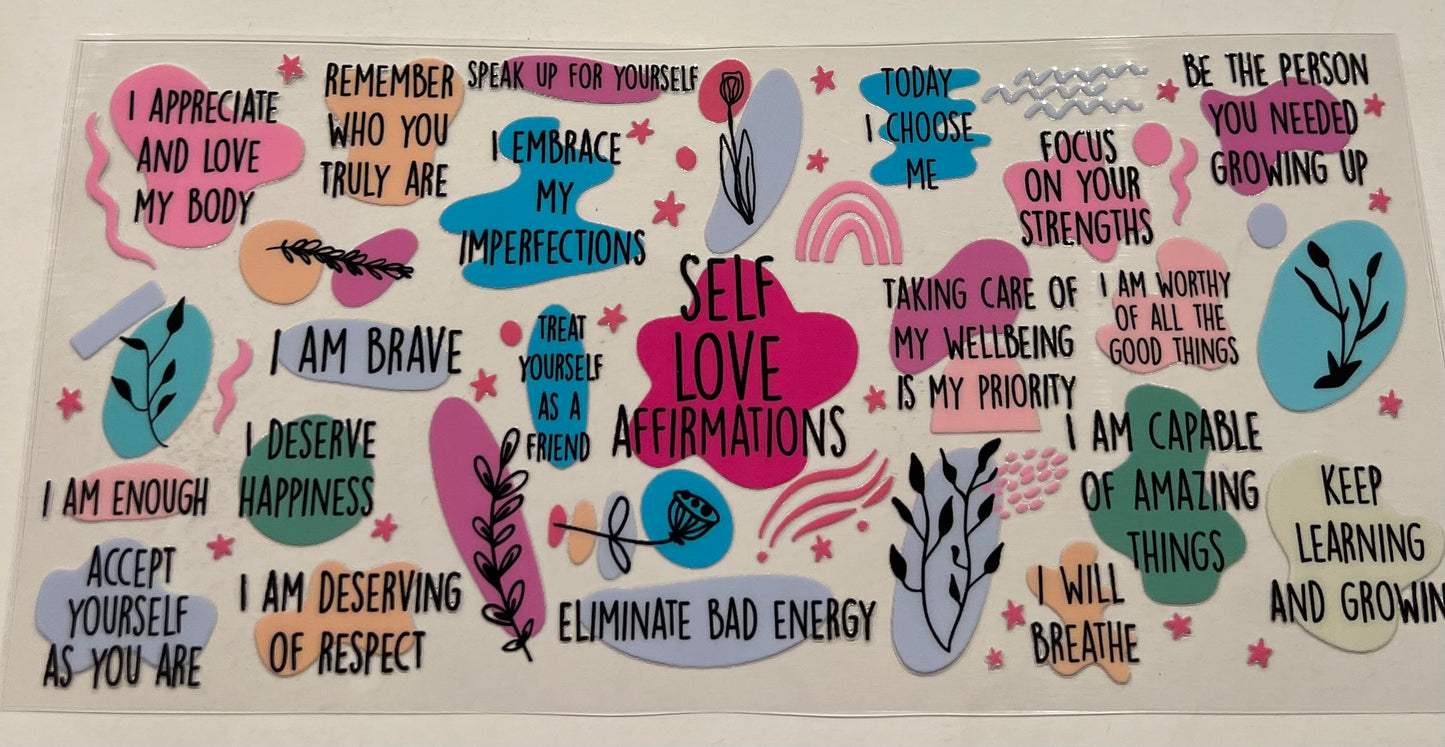 I APPRECIATE
AND LOVE
MY BODY
REMEMBER
WHO YOU
TRULY ARE
SPEAK UP FOR YOURSELF
I EMBRACE
MY
IMPERFECTIONS
TODAY
I CHOOSE
ME
FOCUS
ON YOUR
STRENGTHS
BE THE PERSON
YOU NEEDED
GROWING UP
I AM BRAVE
TREAT
YOURSELF
AS A
FRIEND
SELF
LOVE
AFFIRMATIONS
TAKING CARE OF
MY WELLBEING
IS MY PRIORITY
I AM WORTHY
OF ALL THE
GOOD THINGS
I AM ENOUGH
I DESERVE
HAPPINESS
I AM CAPABLE
OF AMAZING
THINGS
KEEP
LEARNING
AND GROWIN
ACCEPT
YOURSELF
AS YOU ARE
I AM DESERVING
OF RESPECT
ELIMINATE BAD ENERGY
I WILL
BREATHE